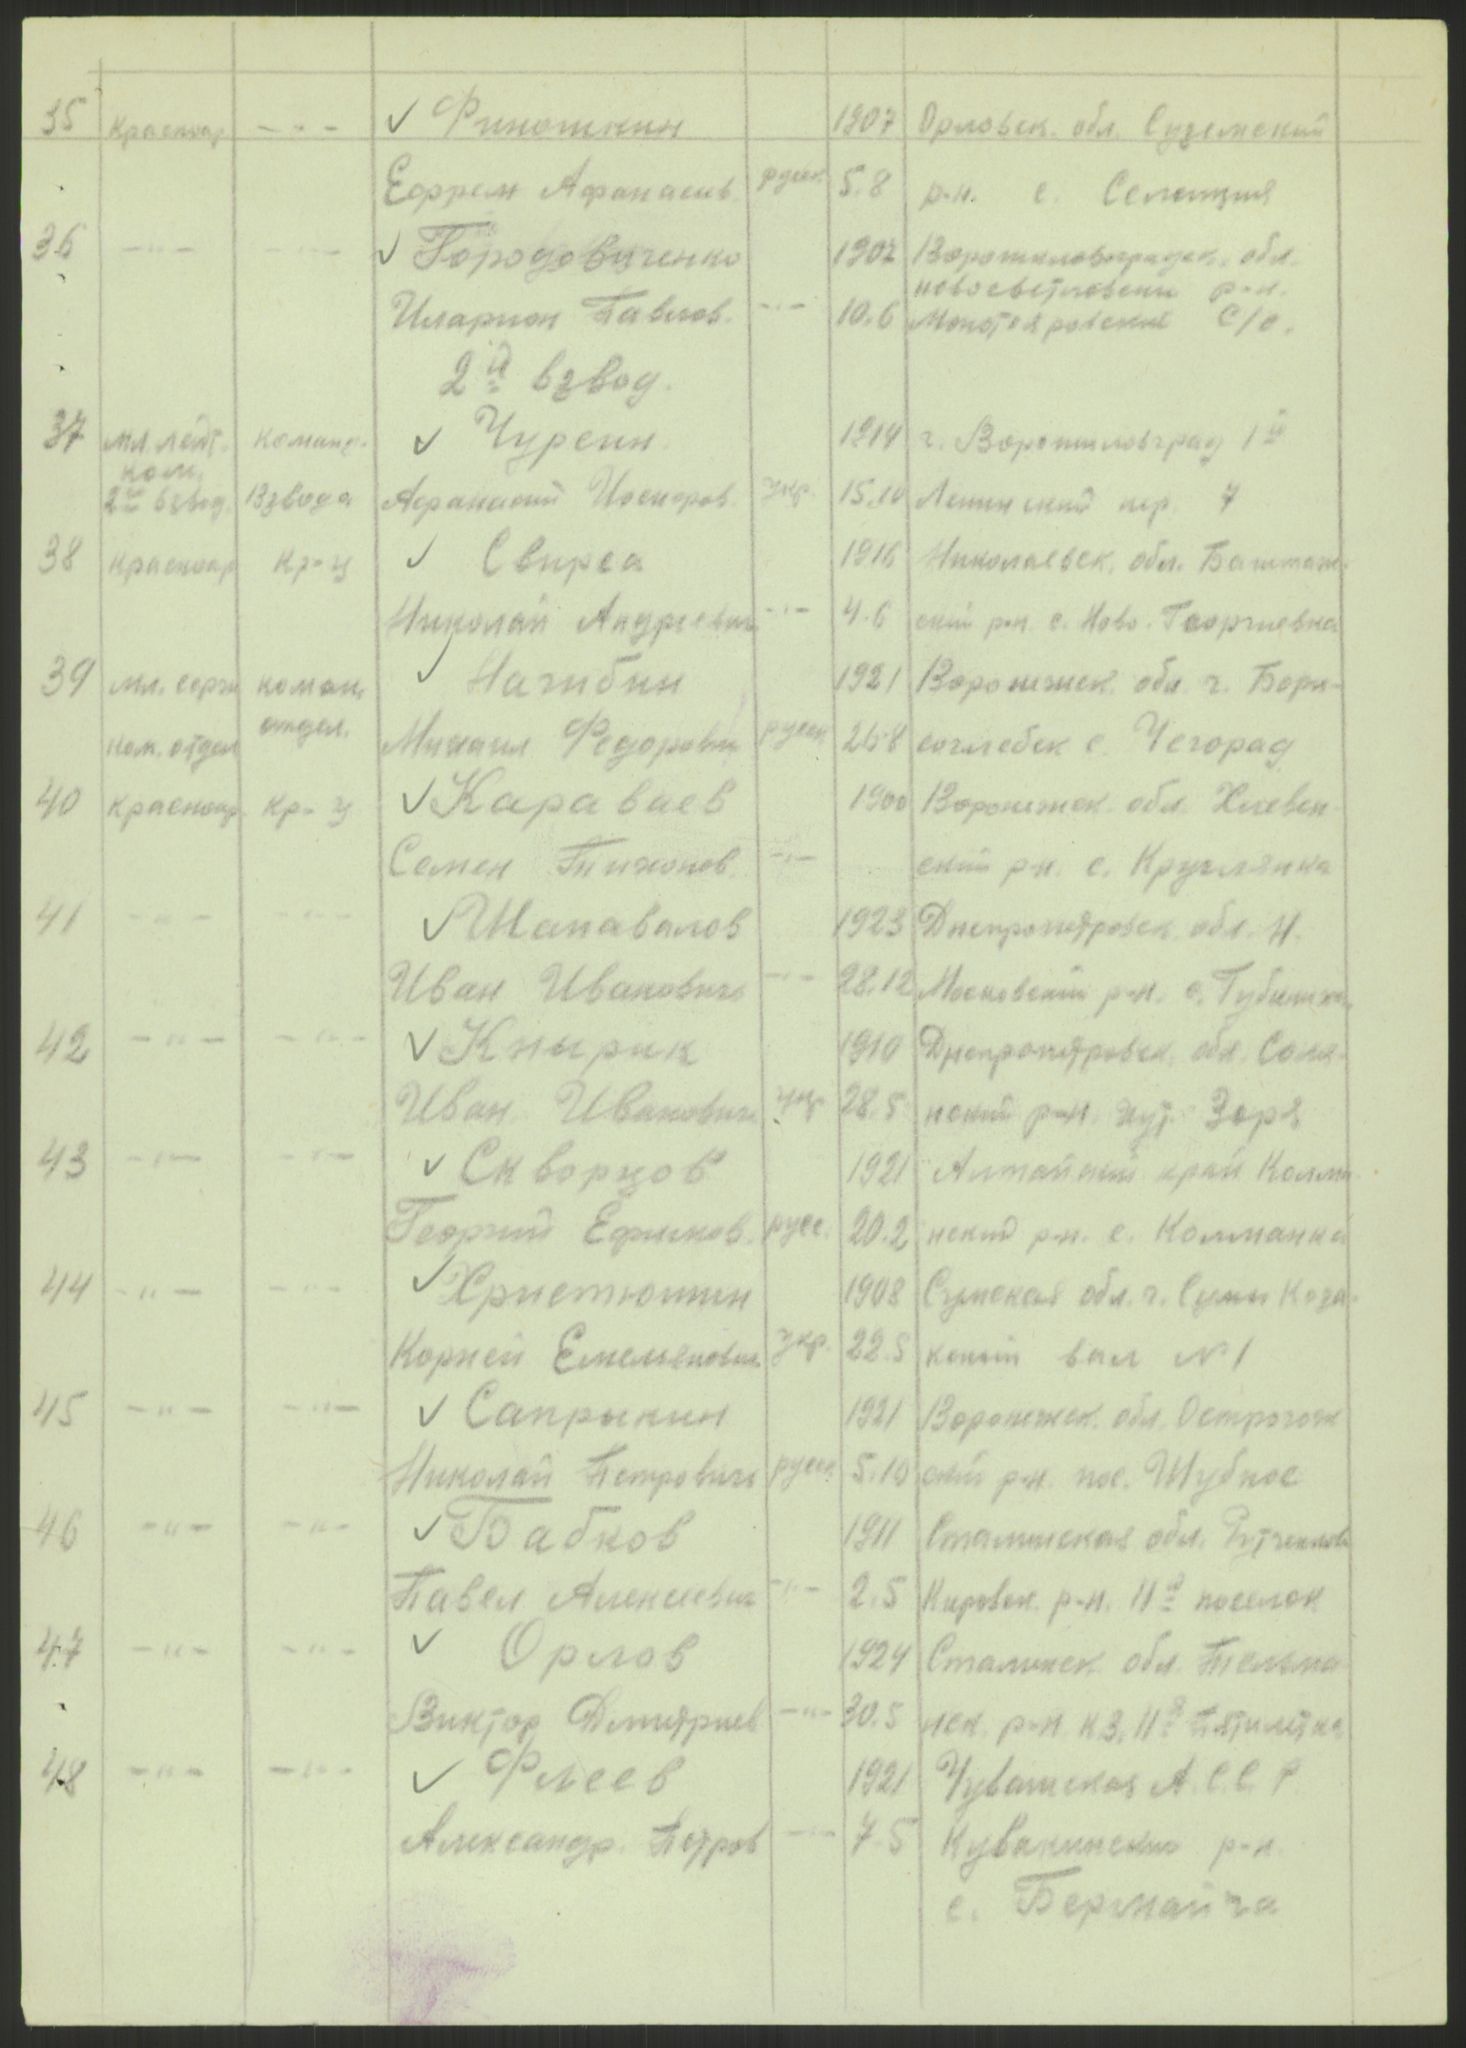 35 Красноар - " - ✓ Финошкин 1907 Орловск. обл. Суземский
Ефрем Афанасьев. русск. 5.8 р-н. с. Селищия
36 - " - - " - ✓ Городовиченко 1907 Ворошиловградск. обл.
новосветловски р-н.
Иларион Павлов. - " - 10.6 С/с.
2й взвод.
37 мл. лейт. команд. ✓ Чурсин. 1914 г. Ворошиловград 1й
ком.
2го взвод. Взвода Афанасий Никиров. укр. 15.10 Ленинский пер. 7
38 красноар кр-ц ✓ Свирса 1916 Николаевск. обл. Баштан-
Николай Андреевич - " - 4.6 ский р-н. с. Ново-Георгиевка
39 мл. серж. коман. ✓ Нагибин 1921 Воронежск. обл. г. Бори-
ком. отдел отдел. Михаил Федорович русск 26.8 соглебск с. Чегорад
40 красноар. кр-ц ✓ Караваев 1900 Воронежск. обл. Хлевен-
Семен Тихонов. - " - ский р-н. с. Круглянка
41 - " - - " - ✓ Шаповалов 1923 Днепропетровск. обл. Н.
Иван Иванович - " - 28.12 Московский р-н. с.
42 - " - - " - ✓ Кнырик 1910 Днепропетровск. обл. Соля-
Иван Иванович укр. 28.5 нский р-н. хут. Заря
43 - " - - " - ✓ Скворцов 1921 Алтайский край Калма-
Георгий Ефимов. русс. 20.2 нский р-н. с. Калманка
44 - " - - " - ✓ Христюшин 1908 Сумская обл. г. Сумы Коза-
Корней Емельянович укр. 22.5 кский вал № 1
45 - " - - " - ✓ Сапрыкин 1921 Воронежск. обл. Острогож
Николай Петрович русск 5.10 ский р-н. пос. Шубное
46 - " - - " - ✓ Бабков 1911 Сталинская обл. Рутченково
Павел Алексеевич - " - 2.5 Кировск. р-н. 11й поселок
47 - " - - " - ✓ Орлов 1924 Сталинск. обл. Тельма-
Виктор Дмитриев - " - 30.5 нск. р-н к.з. 11я Пятилетка
48 - " - - " - ✓ Флеев 1921 Чувашская А.С.С.Р.
Александр. Петров - " - 7.5 Кувакинский р-н.
с.